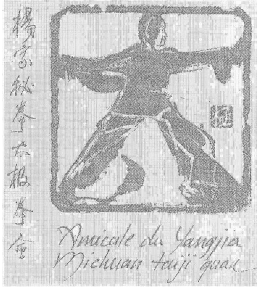 楊家秘 太極拳
Amicale du Yangjia
Michuan taiji quan